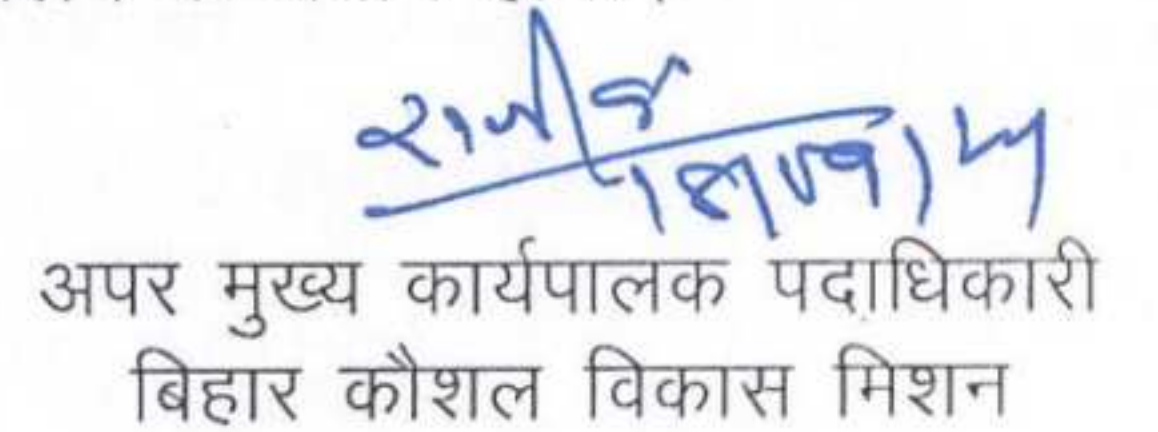 राजीव
अपर मुख्य कार्यपालक पदाधिकारी
बिहार कौशल विकास मिशन